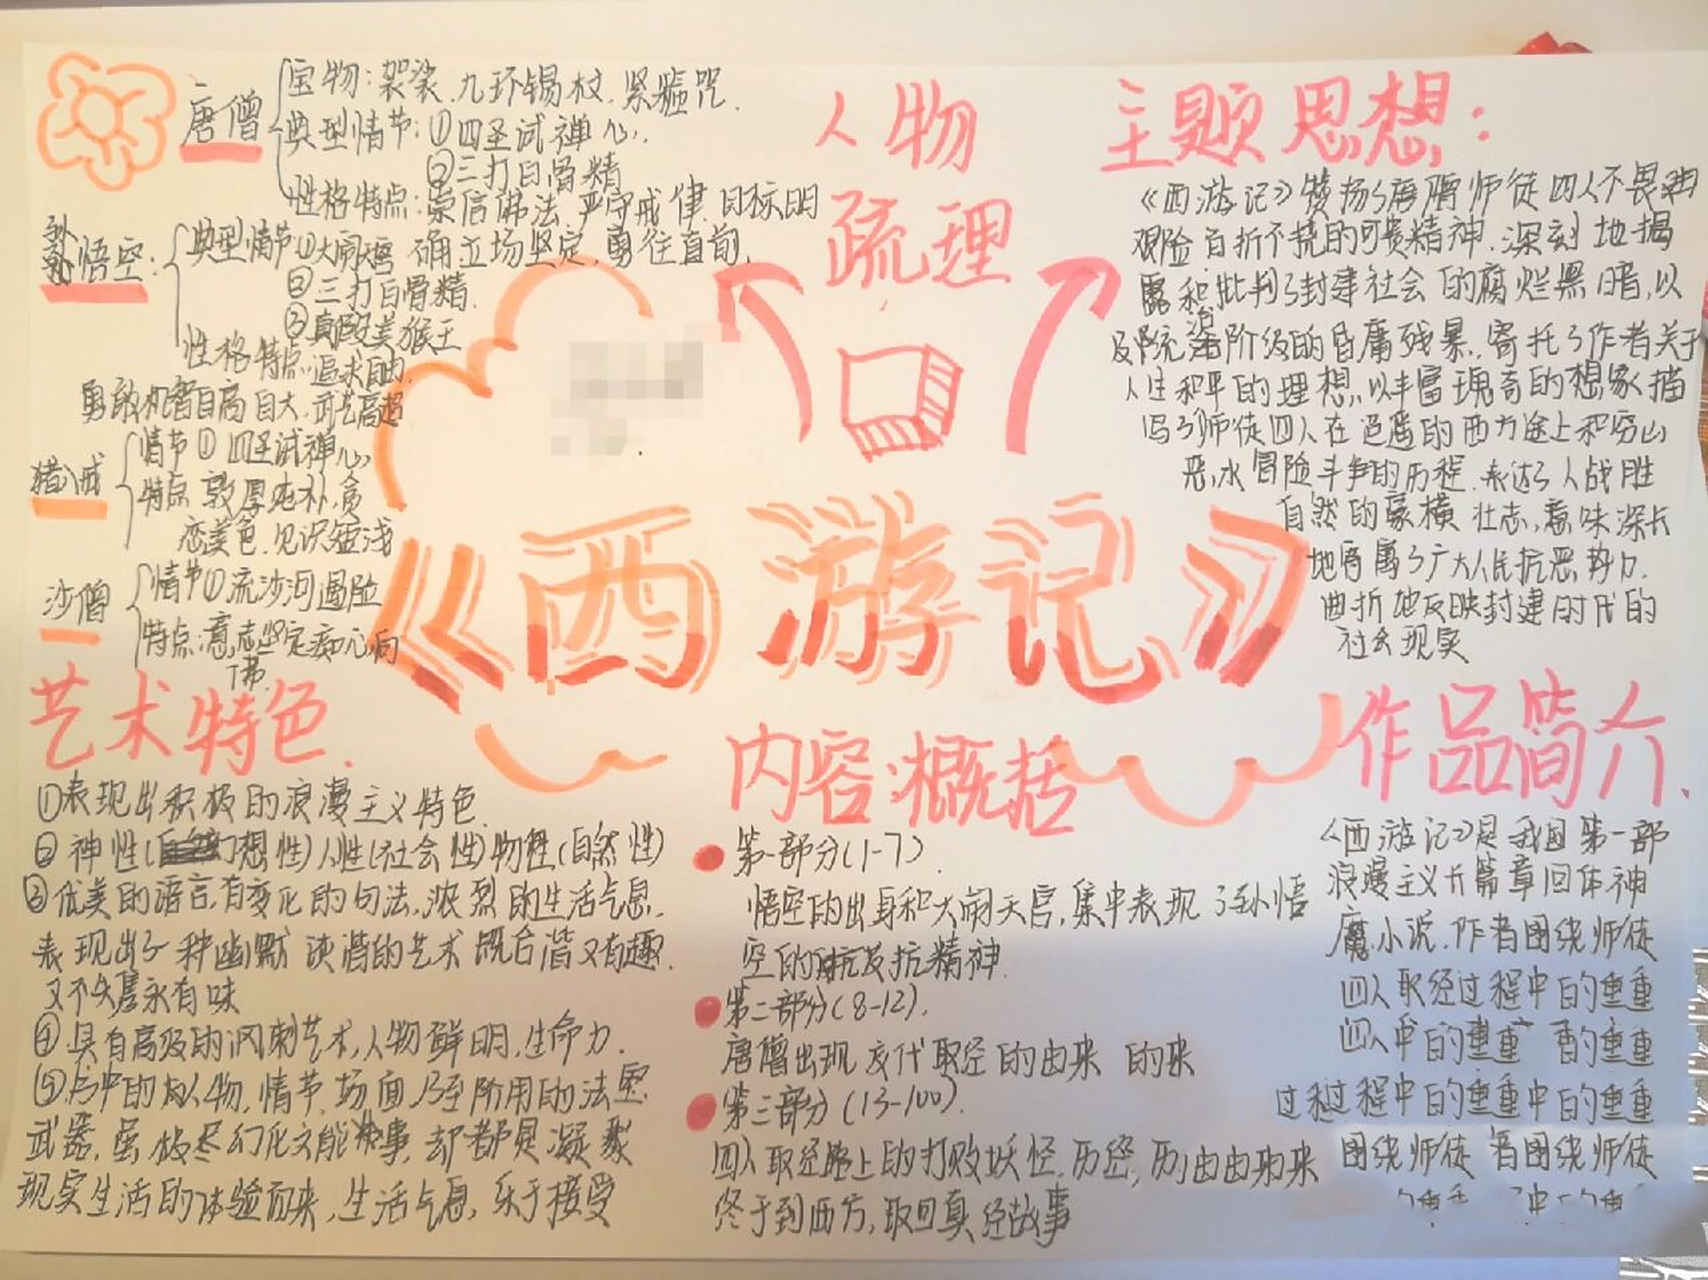 人物
疏理
唐僧
宝物:袈裟.九环锡杖.紧箍咒.
典型情节:①四圣试禅心.
②三打白骨精
性格特点:崇信佛法.严守戒律.目标明
确立场坚定,勇往直前.
孙悟空:
典型情节①大闹天宫
②三打白骨精.
③真假美猴王
性格特点:追求自由.
勇敢机智自高自大.武艺高超
猪八戒
情节①四圣试禅心,
特点 敦厚纯朴,贪
恋美色.见识短浅
沙僧
情节①流沙河遇险
特点:意志坚定痴心向
佛.
主题思想:
《西游记》赞扬了唐僧师徒四人不畏
艰险百折不挠的可贵精神.深刻地揭
露和批判了封建社会的腐烂黑暗,以
及统治阶级的昏庸残暴.寄托了作者关于
人生和平的理想.以丰富瑰奇的想象描
写了师徒四人在迢遥的西方途上和穷山
恶水冒险斗争的历程.表达了人战胜
自然的豪横壮志,意味深长
地寄寓了广大人民抗恶势力.
曲折地反映封建时代的
社会现实
《西游记》
艺术特色.
①表现出积极的浪漫主义特色.
②神性(幻想性)人性(社会性)物性(自然性)
③优美的语言,有变化的句法,浓烈的生活气息.
表现出了种幽默 诙谐的艺术 既合谐又有趣.
又不失隽永有味
④具有高级的讽刺艺术,人物鲜明,生命力.
⑤书中的人物,情节.场面,乃至所用的法宝.
武器,虽极尽幻化之能事,却都是凝聚
现实生活的体验而来,生活气息,乐于接受
内容概括
第一部分(1-7)
悟空的出身和大闹天宫,集中表现了孙悟
空的反抗精神.
第二部分(8-12).
唐僧出现 交代取经的由来 的来
第三部分(13-100).
四人取经路上的打败妖怪.历经,历由由来
终于到西方,取回真经故事
作品简介.
《西游记》是我国第一部
浪漫主义长篇章回体神
魔小说.作者围绕师徒
四人取经过程中的重重
四人中的重重 的重重
过程过程中的重重中的重重
围绕师徒 者围绕师徒